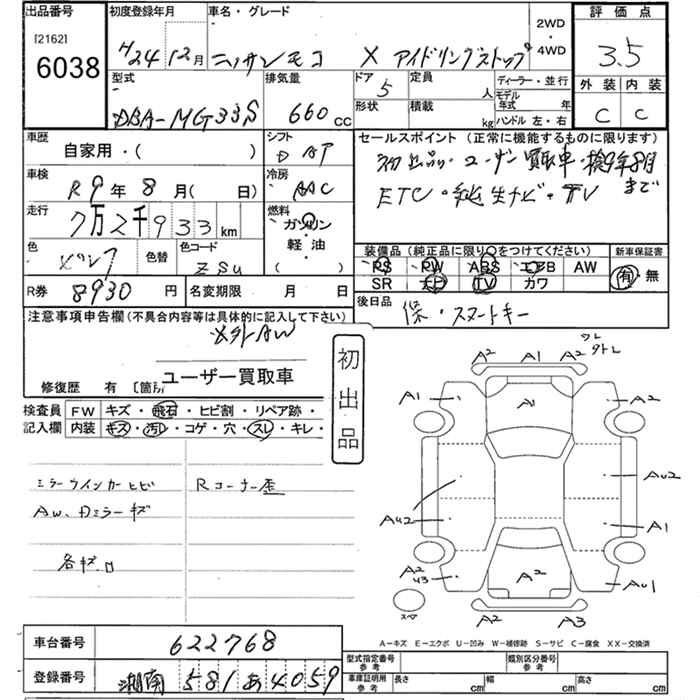 出品番号
[2162]
6038
初度登録年月
H24 12月
車名・グレード
ニッサン モコ X アイドリングストップ
2WD
・
4WD
評価点
3.5
外装 内装
C C
型式
DBA-MG33S
排気量
660 cc
ドア
5
定員
人
形状
積載
kg
ディーラー・並行
モデル年式 年
ハンドル 左・右
車歴
自家用・( )
シフト
D AT
セールスポイント (正常に機能するものに限ります)
初出品・ユーザー買取車・検9年8月まで
ETC・純正ナビ・TV
車検
R9年 8月( 日)
冷房
AAC
走行
7万2千933km
燃料
ガソリン
・
軽油
( )
色
ピンク
色替
色コード
ZSU
R券
8930 円
名変期限 月 日
装備品 (純正品に限り○をつけてください)
PS PW ABS エアB AW
SR ナビ TV カワ
新車保証書
有・無
後日品
保・スマートキー
注意事項申告欄 (不具合内容等は具体的に記入して下さい)
社外AW
修復歴 有 [箇所
ユーザー買取車
初出品
検査員記入欄
FW キズ・飛石・ヒビ割・リペア跡・
内装 キズ・汚レ・コゲ・穴・スレ・キレ・
ミラーウインカーヒビ Rコーナー歪
AW、Dミラーキズ
各キズ凹
ワレ
A2 A1 A2 タトレ
A1 A1 A2
AU2
AU2 A1
A2
U3 A2 AU1
スペア
A2 A3
A-キズ E-エクボ U-凹み W-補修跡 S-サビ C-腐食 XX-交換済
車台番号
622768
登録番号
湘南 581 あ 4059
型式指定番号
参考
類別区分番号
参考
車庫証明用
参考
長さ cm
幅 cm
高さ cm